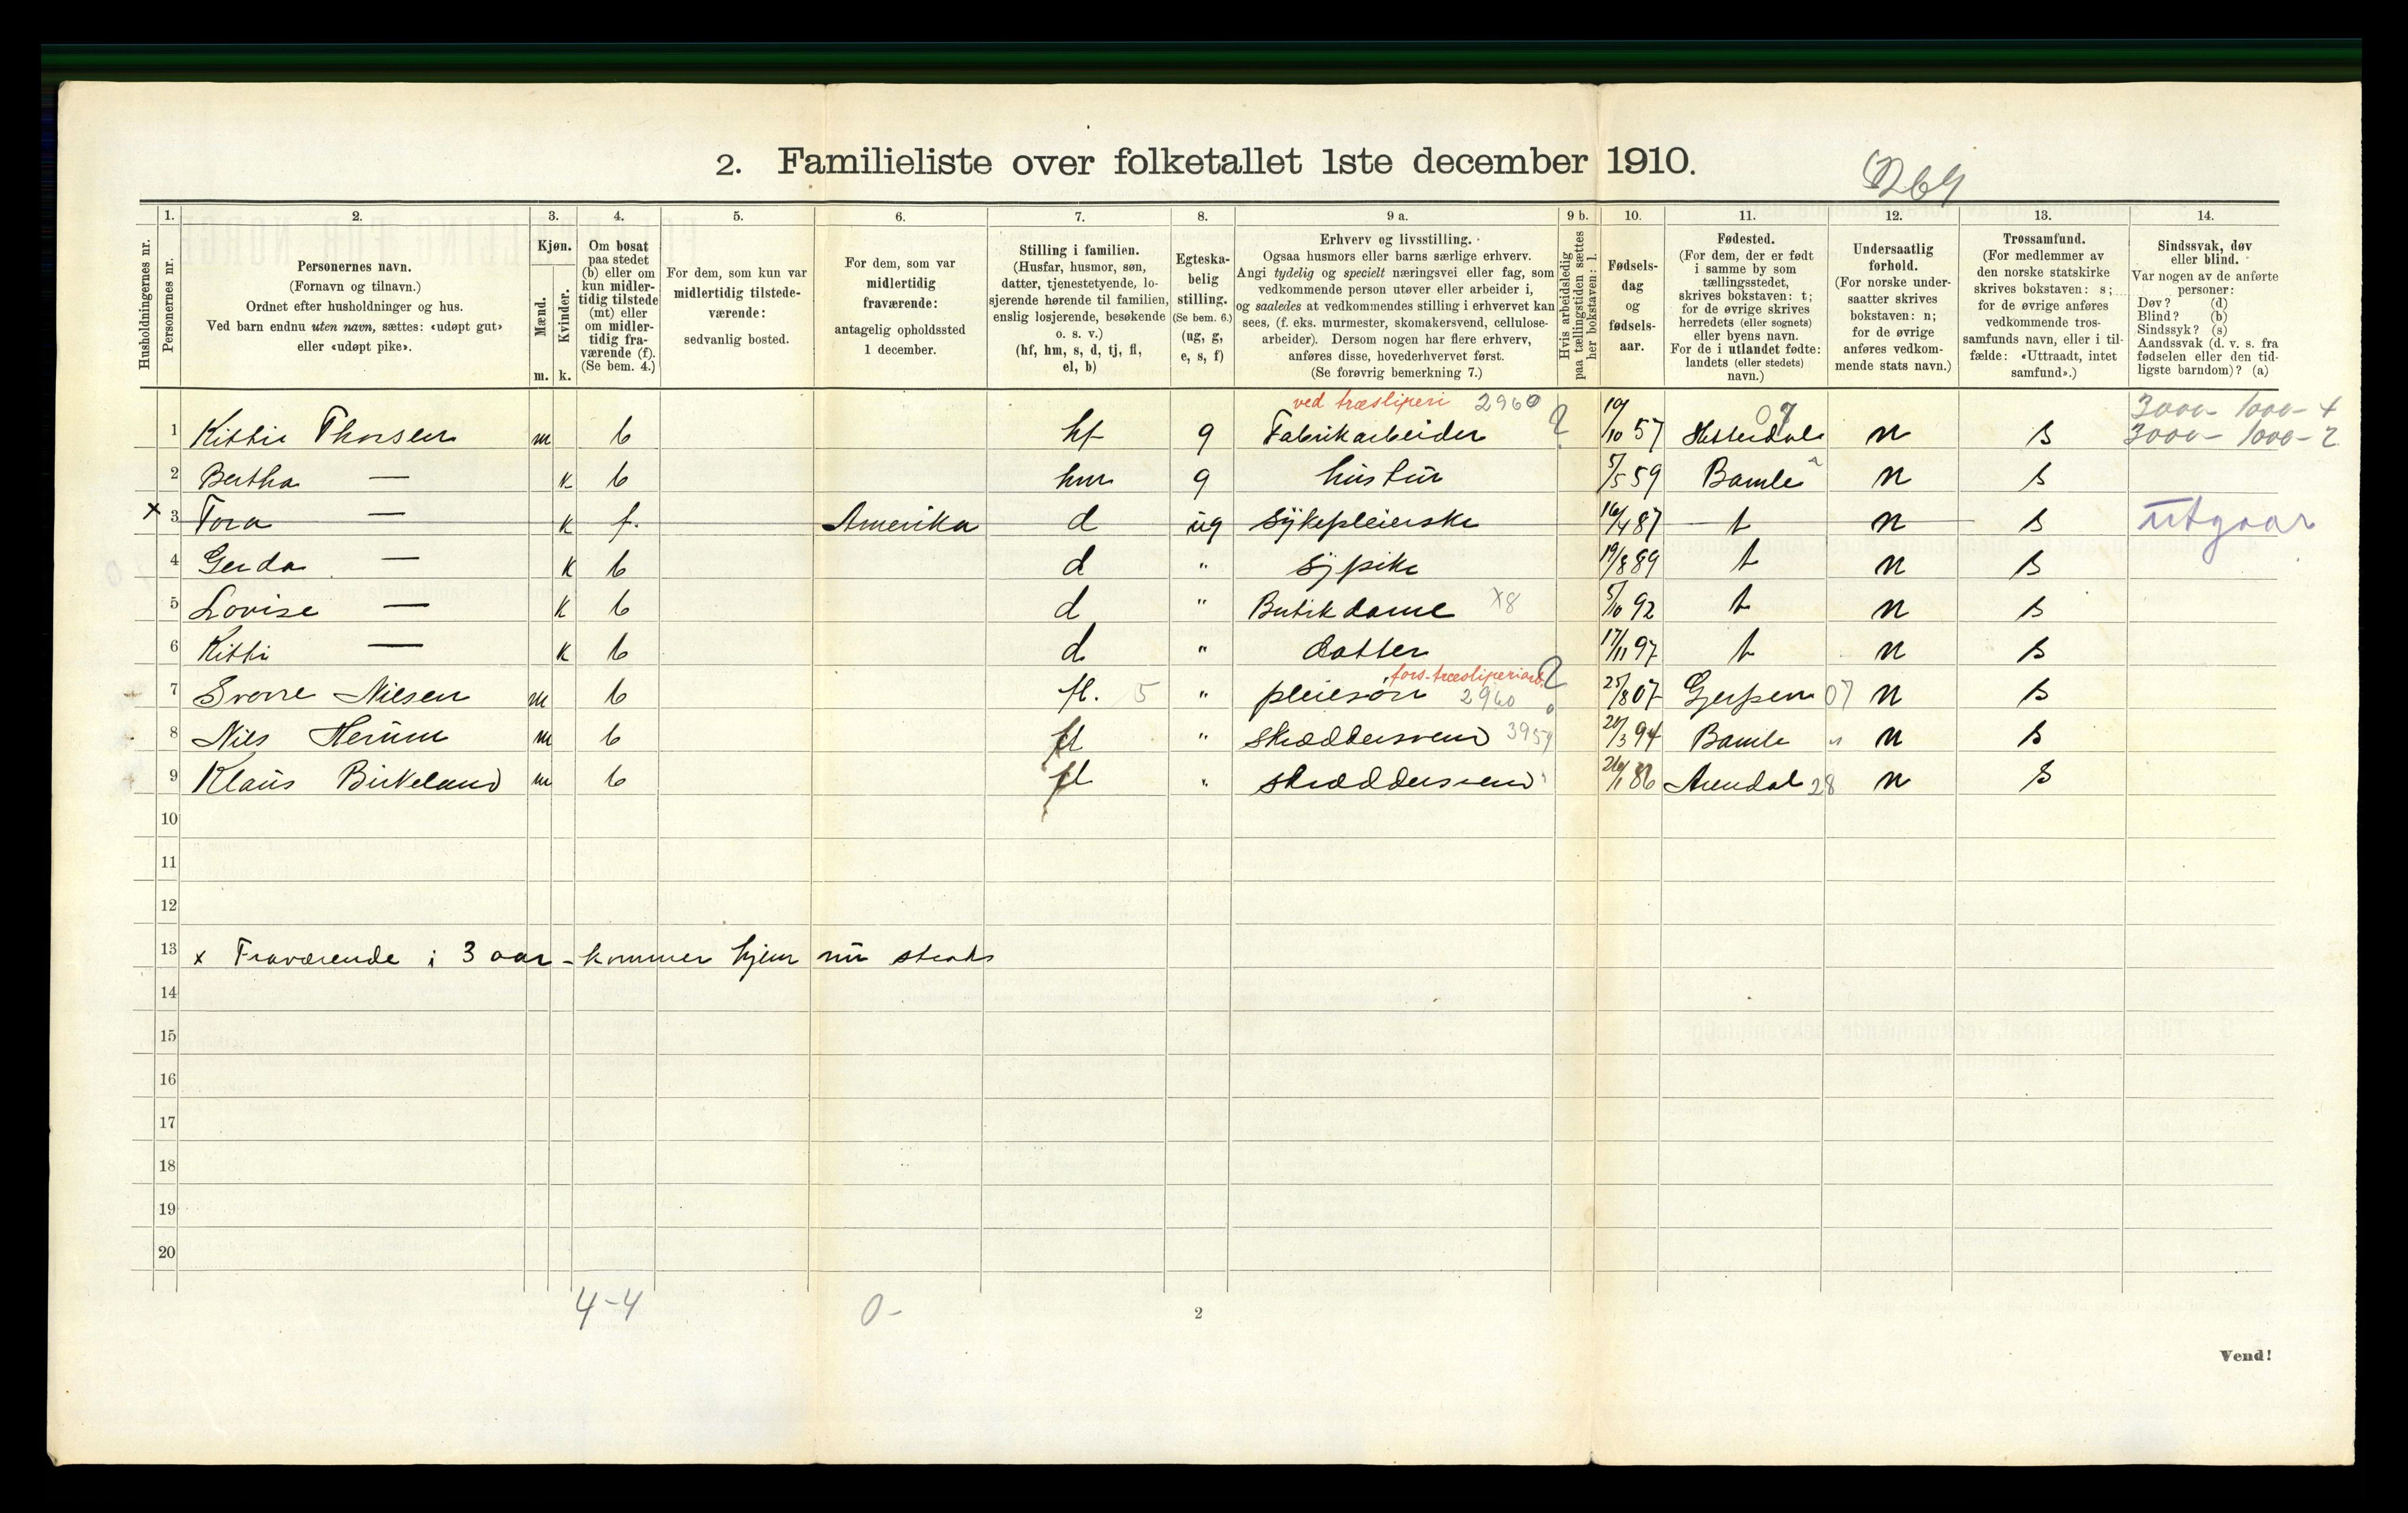 2. Familieliste over folketallet 1ste december 1910.
1. 2. 3. 4. 5. 6. 7. 8. 9 a. 9 b. 10. 11. 12. 13. 14.
Husholdningernes nr.
Personernes nr.
Personernes navn.
(Fornavn og tilnavn.)
Ordnet efter husholdninger og hus.
Ved barn endnu uten navn, sættes: «udøpt gut»
eller «udøpt pike».
Kjøn.
Mænd.
Kvinder.
m. k.
Om bosat
paa stedet
(b) eller om
kun midler-
tidig tilstede
(mt) eller
om midler-
tidig fra-
værende (f).
(Se bem. 4.)
For dem, som kun var
midlertidig tilstede-
værende:
sedvanlig bosted.
For dem, som var
midlertidig
fraværende:
antagelig opholdssted
1 december.
Stilling i familien.
(Husfar, husmor, søn,
datter, tjenestetyende, lo-
sjerende hørende til familien,
enslig losjerende, besøkende
o. s. v.)
(hf, hm, s, d, tj, fl,
el, b)
Egteska-
belig
stilling.
(Se bem. 6.)
(ug, g,
e, s, f)
Erhverv og livsstilling.
Ogsaa husmors eller barns særlige erhverv.
Angi tydelig og specielt næringsvei eller fag, som
vedkommende person utøver eller arbeider i,
og saaledes at vedkommendes stilling i erhvervet kan
sees, (f. eks. murmester, skomakersvend, cellulose-
arbeider). Dersom nogen har flere erhverv,
anføres disse, hovederhvervet først.
(Se forøvrig bemerkning 7.)
Hvis arbeidsledig
paa tællingstiden sættes
her bokstaven: l.
Fødsels-
dag
og
fødsels-
aar.
Fødested.
(For dem, der er født
i samme by som
tællingsstedet,
skrives bokstaven: t;
for de øvrige skrives
herredets (eller sognets)
eller byens navn.
For de i utlandet fødte:
landets (eller stedets)
navn.)
Undersaatlig
forhold.
(For norske under-
saatter skrives
bokstaven: n;
for de øvrige
anføres vedkom-
mende stats navn.)
Trossamfund.
(For medlemmer av
den norske statskirke
skrives bokstaven: s;
for de øvrige anføres
vedkommende tros-
samfunds navn, eller i til-
fælde: «Uttraadt, intet
samfund».)
Sindssvak, døv
eller blind.
Var nogen av de anførte
personer:
Døv? (d)
Blind? (b)
Sindssyk? (s)
Aandssvak (d. v. s. fra
fødselen eller den tid-
ligste barndom)? (a)
ved træsliperi 2960 3000- 1000- 4
1 Kittil Thorsen m b hf g Fabrikarbeider 10/10 57 Hitterdal 07 n s 3000- 1000- 2
2 Bertha — k b hm g hustru 5/5 59 Bamle n s
x 3 Tora — k f. Amerika d ug Sykepleierske 16/4 87 t n s utgaar
4 Gerda — k b d " Sypike 19/8 89 t n s
5 Lovise — k b d " Butikdame X8 5/10 92 t n s
6 Kitti — k b d " datter 17/11 97 t n s
7 Sverre Nilsen m b fl. 5 " pleiesøn 2960 25/8 07 Gjerpen 07 n s
8 Nils Herum m b fl " skræddersvend 3959 /3 94 Bamle " n s
9 Klaus Birkeland m b fl " skræddersvend 26/1 86 Arendal 28 n s
10
11
12
13 x Fraværende i 3 aar - kommer hjem nu straks
14
15
16
17
18
19
20
4-4 0- 2
Vend!